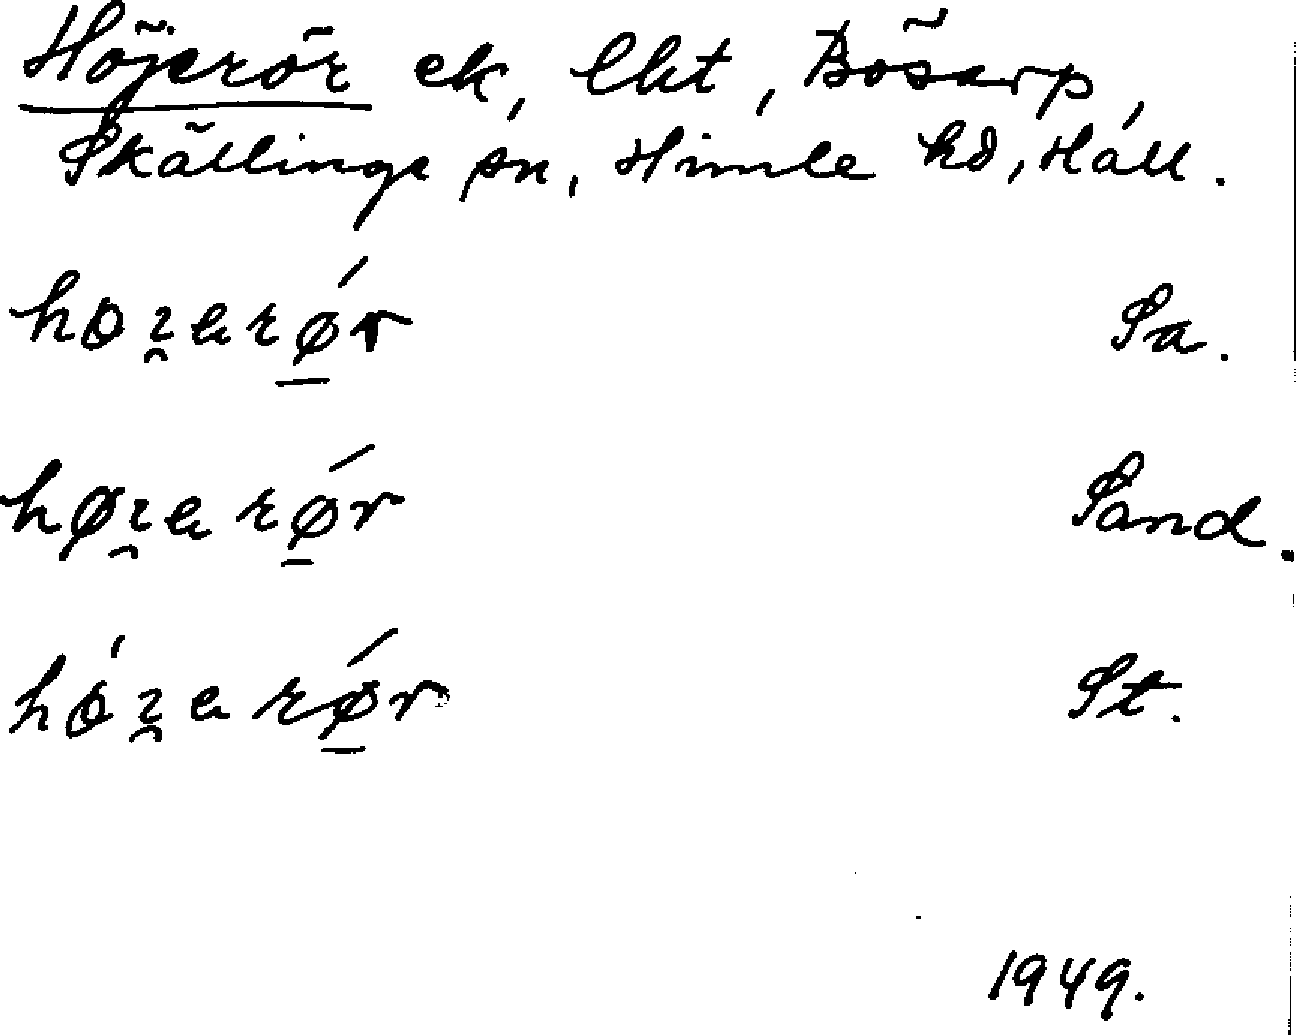 Höjerör ek, lht, Bösarp,
Skällinge sn, Himle hd, Hall.
hoɿ̯arǿ̱r Sa.
høɿ̯arǿ̱r Sand.
hóɿ̯arǿ̱r St.
1949.